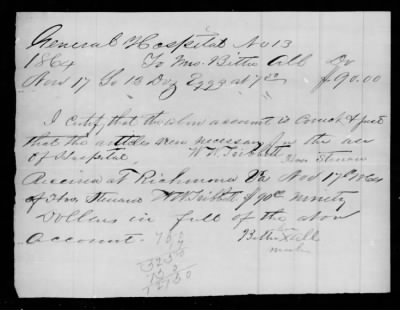 General Hospital No 13
1864 To Mrs. Bettie All Dr
Nov 17 To 12 Doz Eggs at 7.50 $90.00
I certify that the above account is correct & just
that the articles were necessary for the use
of Hospital, W. H. Tribbett
Hosp Steward
Received at Richmond Va Nov 17th 1864
of Hosp Steward W H Tribbett $90 00 Ninety
Dollars in full of the above
account.
her
Bettie X All
mark